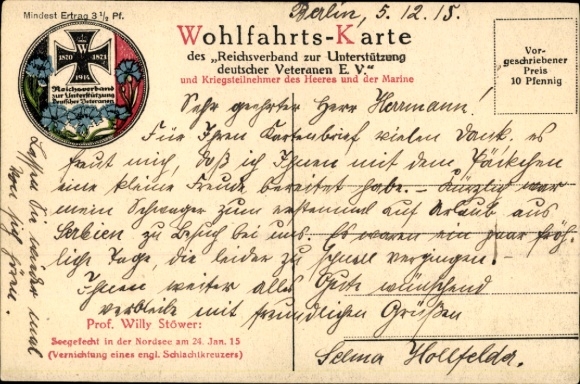 Mindest Ertrag 3 1/2 Pf.
Berlin, 5.12.15.
Wohlfahrts-Karte
des „Reichsverband zur Unterstützung
deutscher Veteranen E. V."
und Kriegsteilnehmer des Heeres und der Marine
Vor-
geschriebener
Preis
10 Pfennig
W
1870 1871
1914
Reichsverband
zur Unterstützung
Deutscher Veteranen
Sehr geehrter Herr Herrmann!
Für Ihren Kartenbrief vielen Dank. es
freut mich, daß ich Ihnen mit dem Päckchen
eine kleine Freude bereitet habe. – Kürzlich war
mein Schwager zum erstenmal auf Urlaub aus
Serbien zu Besuch bei uns. Es waren ein paar fröh-
liche Tage, die leider zu schnell vergingen –
Ihnen weiter alles Gute wünschend
verbleibe mit freundlichen Grüßen
Selma Hollfelder.
Lassen Sie wieder mal
von sich hören.
Prof. Willy Stöwer:
Seegefecht in der Nordsee am 24. Jan. 15
(Vernichtung eines engl. Schlachtkreuzers)